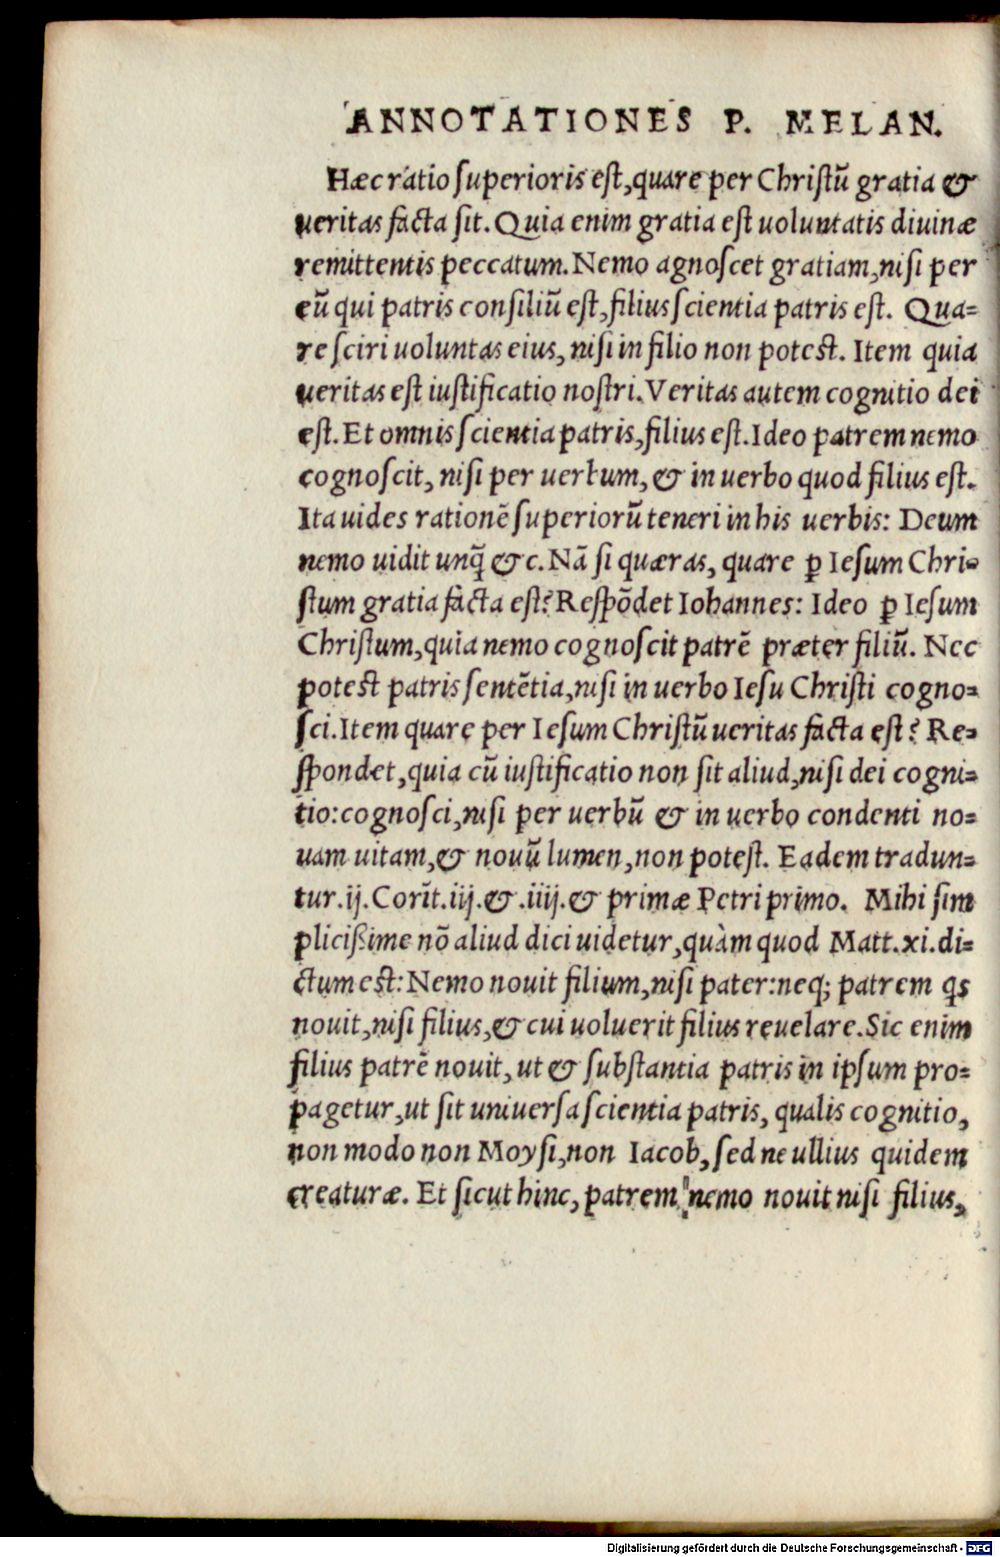 ANNOTATIONES P. MELAN.
Hæc ratio ſuperioris eſt, quare per Chriſtũ gratia &
ueritas facta ſit. Quia enim gratia eſt uoluntatis diuinæ
remittentis peccatum. Nemo agnoſcet gratiam, niſi per
eũ qui patris conſiliũ eſt, filius ſcientia patris eſt. Qua=
re ſciri uoluntas eius, niſi in filio non poteſt. Item quia
ueritas eſt iuſtificatio noſtri. Veritas autem cognitio dei
eſt. Et omnis ſcientia patris, filius eſt. Ideo patrem nemo
cognoſcit, niſi per uerbum, & in uerbo quod filius eſt.
Ita uides rationẽ ſuperiorũ teneri in his uerbis: Deum
nemo uidit unq̃ & c. Nã ſi quæras, quare ꝑ Ieſum Chri=
ſtum gratia facta eſt? Reſpõdet Iohannes: Ideo ꝑ Ieſum
Chriſtum, quia nemo cognoſcit patrẽ præter filiũ. Nec
poteſt patris ſentẽtia, niſi in uerbo Ieſu Chriſti cogno=
ſci. Item quare per Ieſum Chriſtũ ueritas facta eſt? Re=
ſpondet, quia cũ iuſtificatio non ſit aliud, niſi dei cogni=
tio: cognoſci, niſi per uerbũ & in uerbo condenti no=
uam uitam, & nouũ lumen, non poteſt. Eadem tradun=
tur .ij. Corĩt. iij. & .iiij. & primæ Petri primo. Mihi ſim
pliciſsime nõ aliud dici uidetur, quàm quod Matt. xi. di=
ctum eſt: Nemo nouit filium, niſi pater: neq; patrem qs
nouit, niſi filius, & cui uoluerit filius reuelare. Sic enim
filius patrẽ nouit, ut & ſubſtantia patris in ipſum pro=
pagetur, ut ſit uniuerſa ſcientia patris, qualis cognitio,
non modo non Moyſi, non Iacob, ſed ne ullius quidem
creaturæ. Et ſicut hinc, patrem nemo nouit niſi filius,
Digitalisierung gefördert durch die Deutsche Forschungsgemeinschaft - DFG